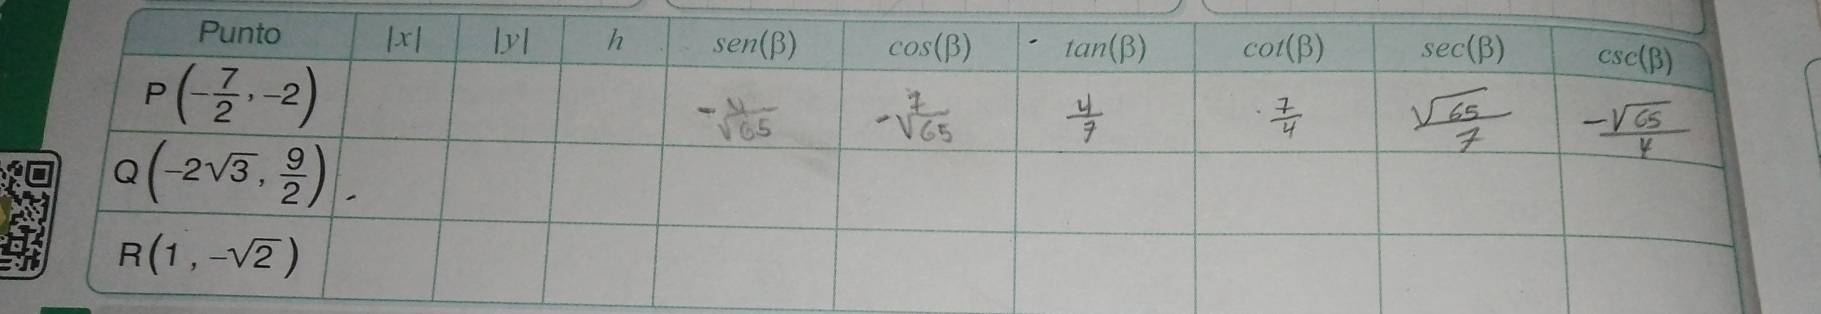 Punto |x| |y| h sen(β) cos(β) tan(β) cot(β) sec(β) csc(β)
P(-7/2, -2) -4/√65 -7/√65 4/7 7/4 √65/7 -√65/4
Q(-2√3, 9/2)
R(1, -√2)